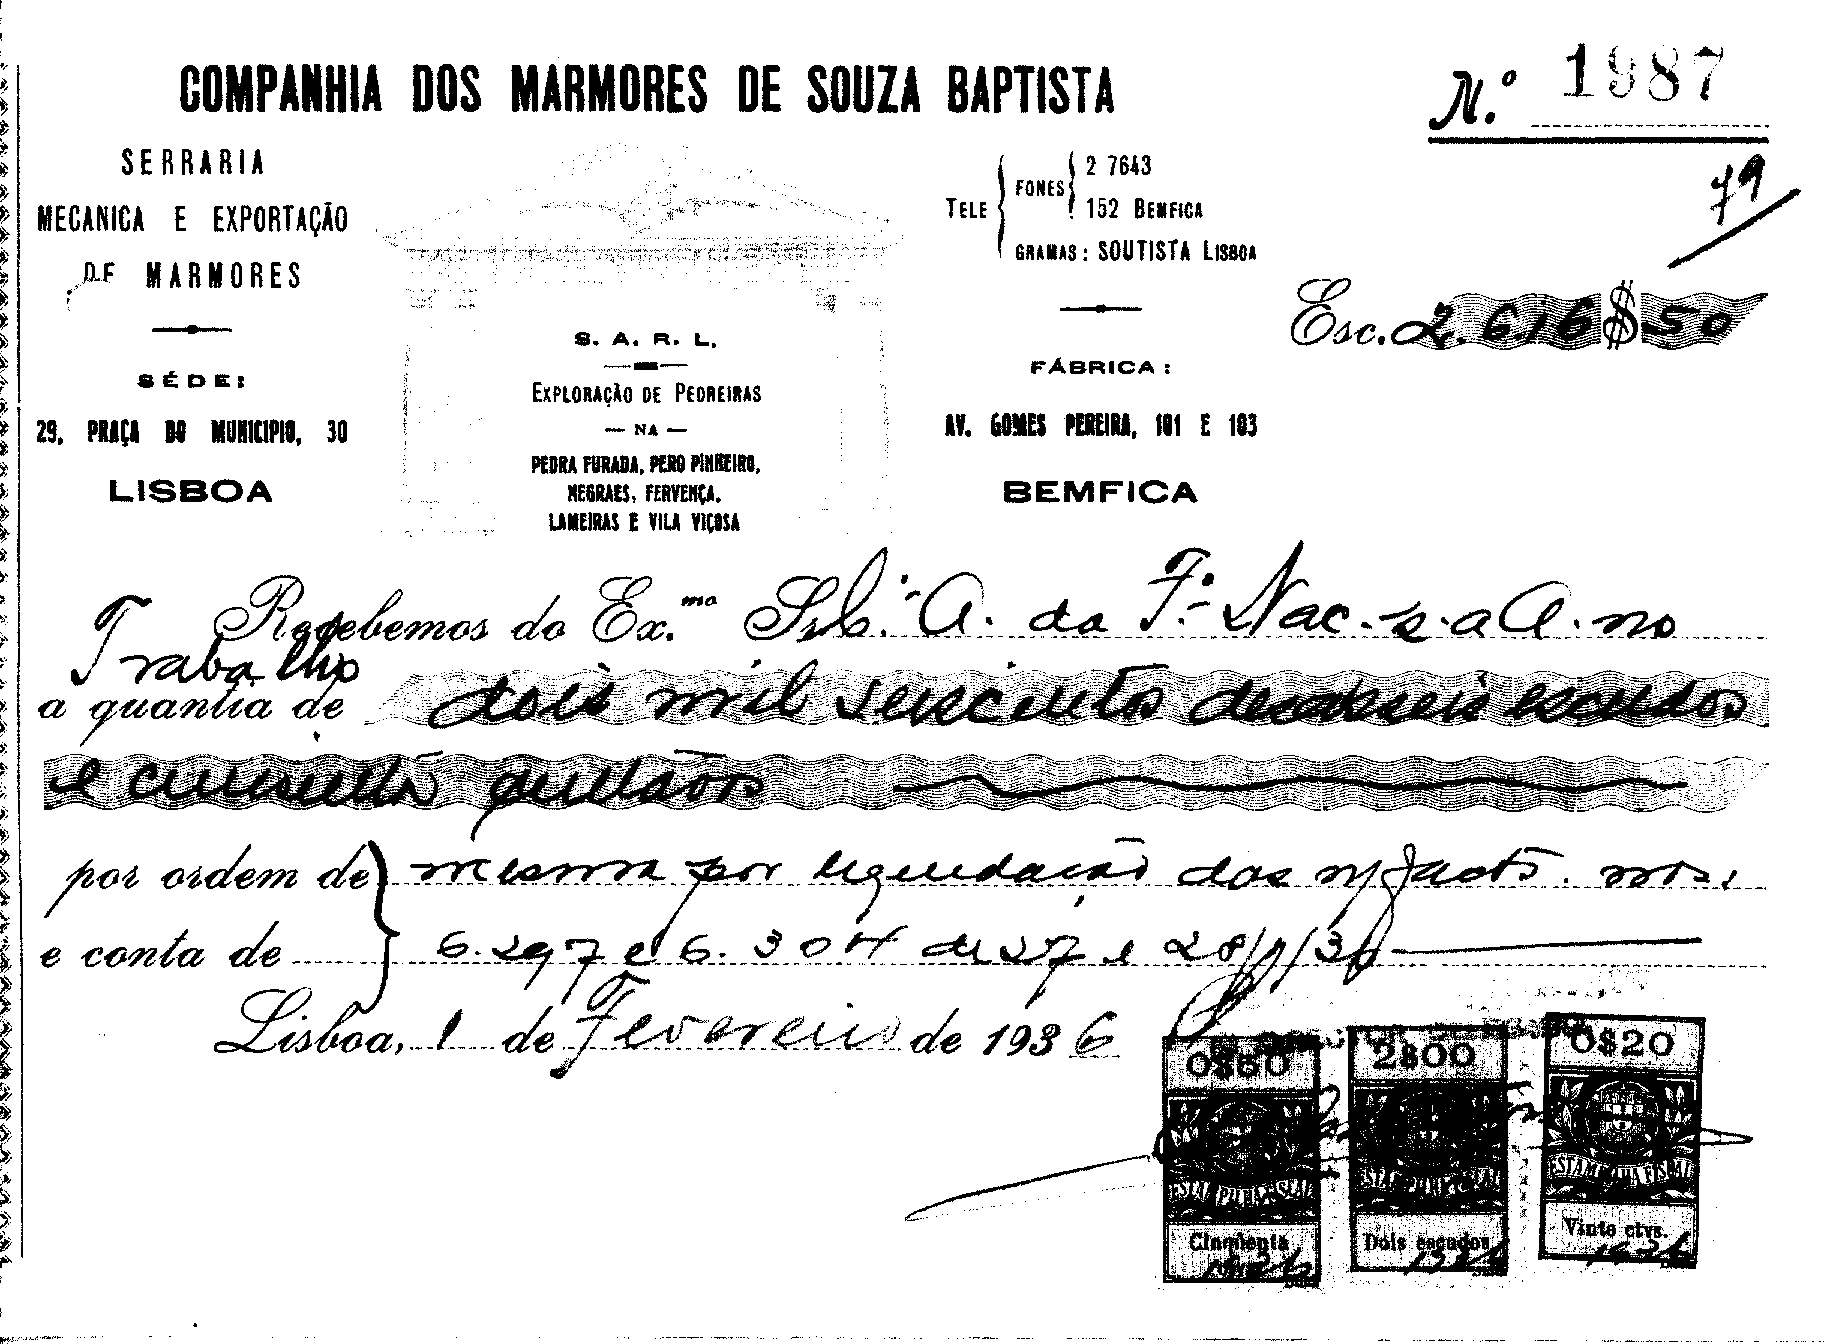 COMPANHIA DOS MARMORES DE SOUZA BAPTISTA
N.º 1987
79
SERRARIA
MECANICA E EXPORTAÇÃO
DE MARMORES
SÉDE:
29, PRAÇA DO MUNICIPIO, 30
LISBOA
S. A. R. L.
EXPLORAÇÃO DE PEDREIRAS
— NA —
PEDRA FURADA, PERO PINHEIRO,
NEGRAES, FERVENÇA,
LAMEIRAS E VILA VIÇOSA
TELE FONES 2 7643
152 BEMFICA
GRAMAS: SOUTISTA LISBOA
FÁBRICA:
AV. GOMES PEREIRA, 101 E 103
BEMFICA
Esc. 2.616$50
Recebemos do Ex.mo A. da F. Nac. p. a A. no
Trabalho
a quantia de dois mil seiscentos desasseis escudos
e cincoenta centavos
por ordem de mesma por liquidação das n/ facts. nos.
e conta de 6.297 e 6.304 de 27 e 28/1/36
Lisboa, 1 de Fevereiro de 1936
0$50
2$00
0$20
ESTAMPILHA FISCAL
ESTAMPILHA FISCAL
ESTAMPILHA FISCAL
Cincoenta
Dois escudos
Vinte ctvs.